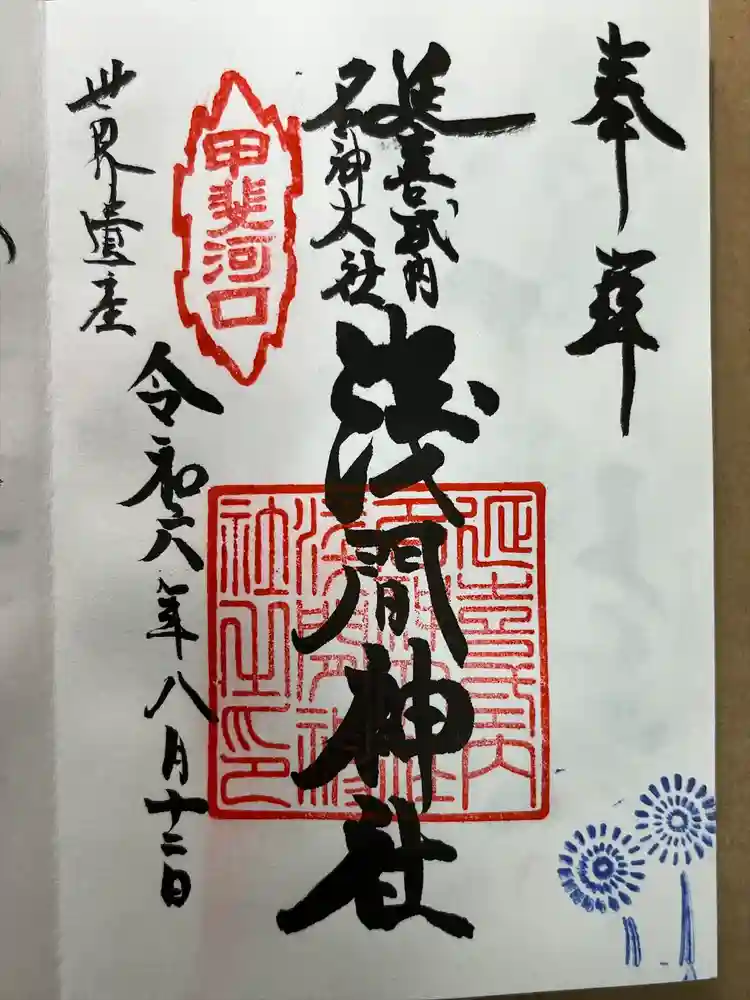 奉拝
延喜式内
名神大社
浅間神社
延喜式内
名神大社
浅間神
社之印
甲斐河口
世界遺産
令和六年八月十二日